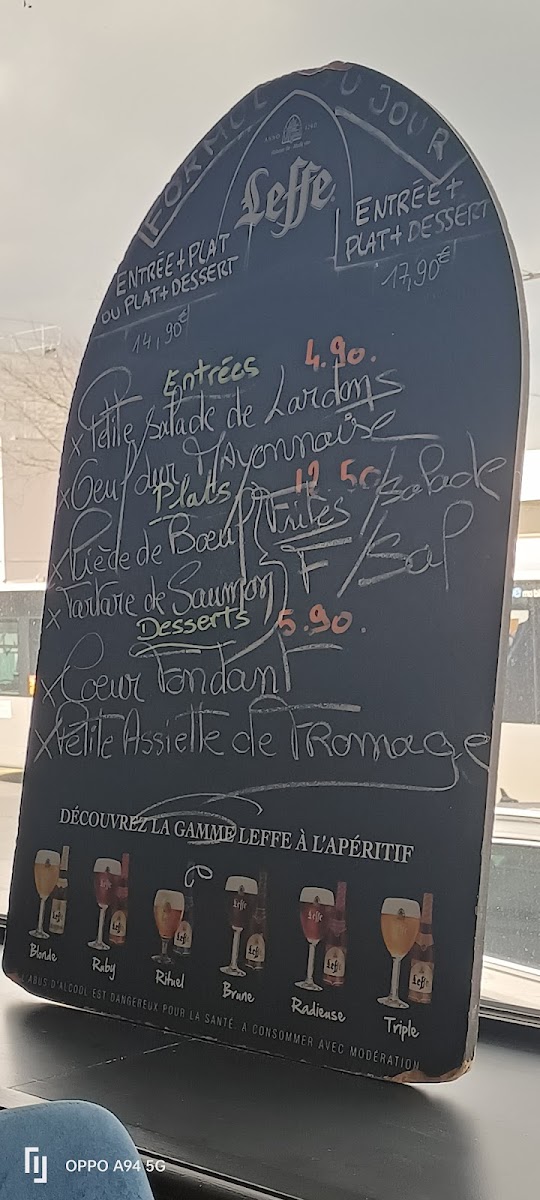 FORMULE DU JOUR
ANNO 1240
Leffe
ENTRÉE + PLAT
OU PLAT + DESSERT
14,90€
ENTRÉE +
PLAT + DESSERT
17,90€
Entrées 4.90.
x Petite Salade de Lardons
x Oeuf dur Mayonnaise
Plats 12.50
x Pièce de Boeuf Frites / Salade
x Tartare de Saumon F / Sal
Desserts 5.90.
x Coeur Fondant
x Petite Assiette de Fromage
DÉCOUVREZ LA GAMME LEFFE À L'APÉRITIF
Blonde Ruby Rituel Brune Radieuse Triple
L'ABUS D'ALCOOL EST DANGEREUX POUR LA SANTÉ. A CONSOMMER AVEC MODÉRATION
OPPO A94 5G